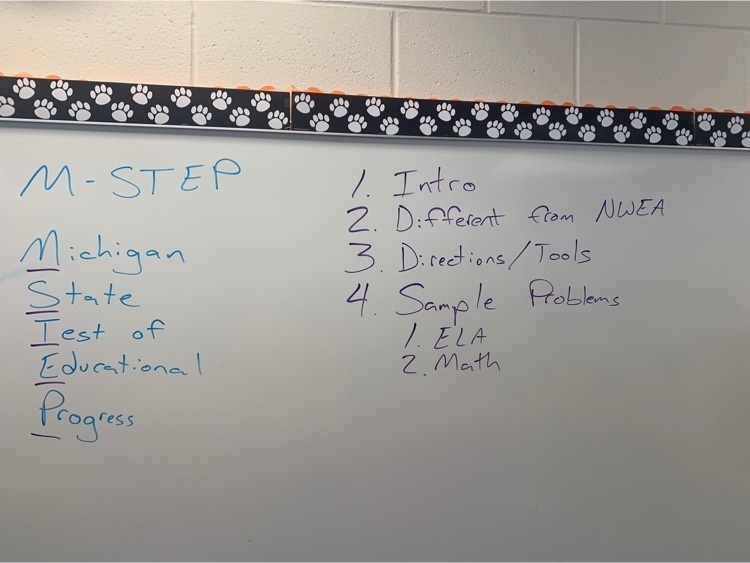 M-STEP
Michigan
State
Test of
Educational
Progress
1. Intro
2. Different from NWEA
3. Directions/Tools
4. Sample Problems
1. ELA
2. Math